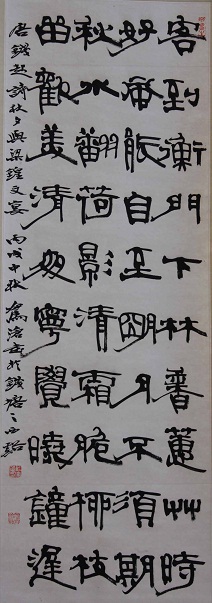 客到衡門下林香蕙艸時
好風能自至朙月不須期
秋水翻荷影清霜脆柳枝
留歡美清夜寧覺曉鐘遲
唐錢起詩秋夕與梁鍠文宴 丙戌中秋 於錢塘之西谿